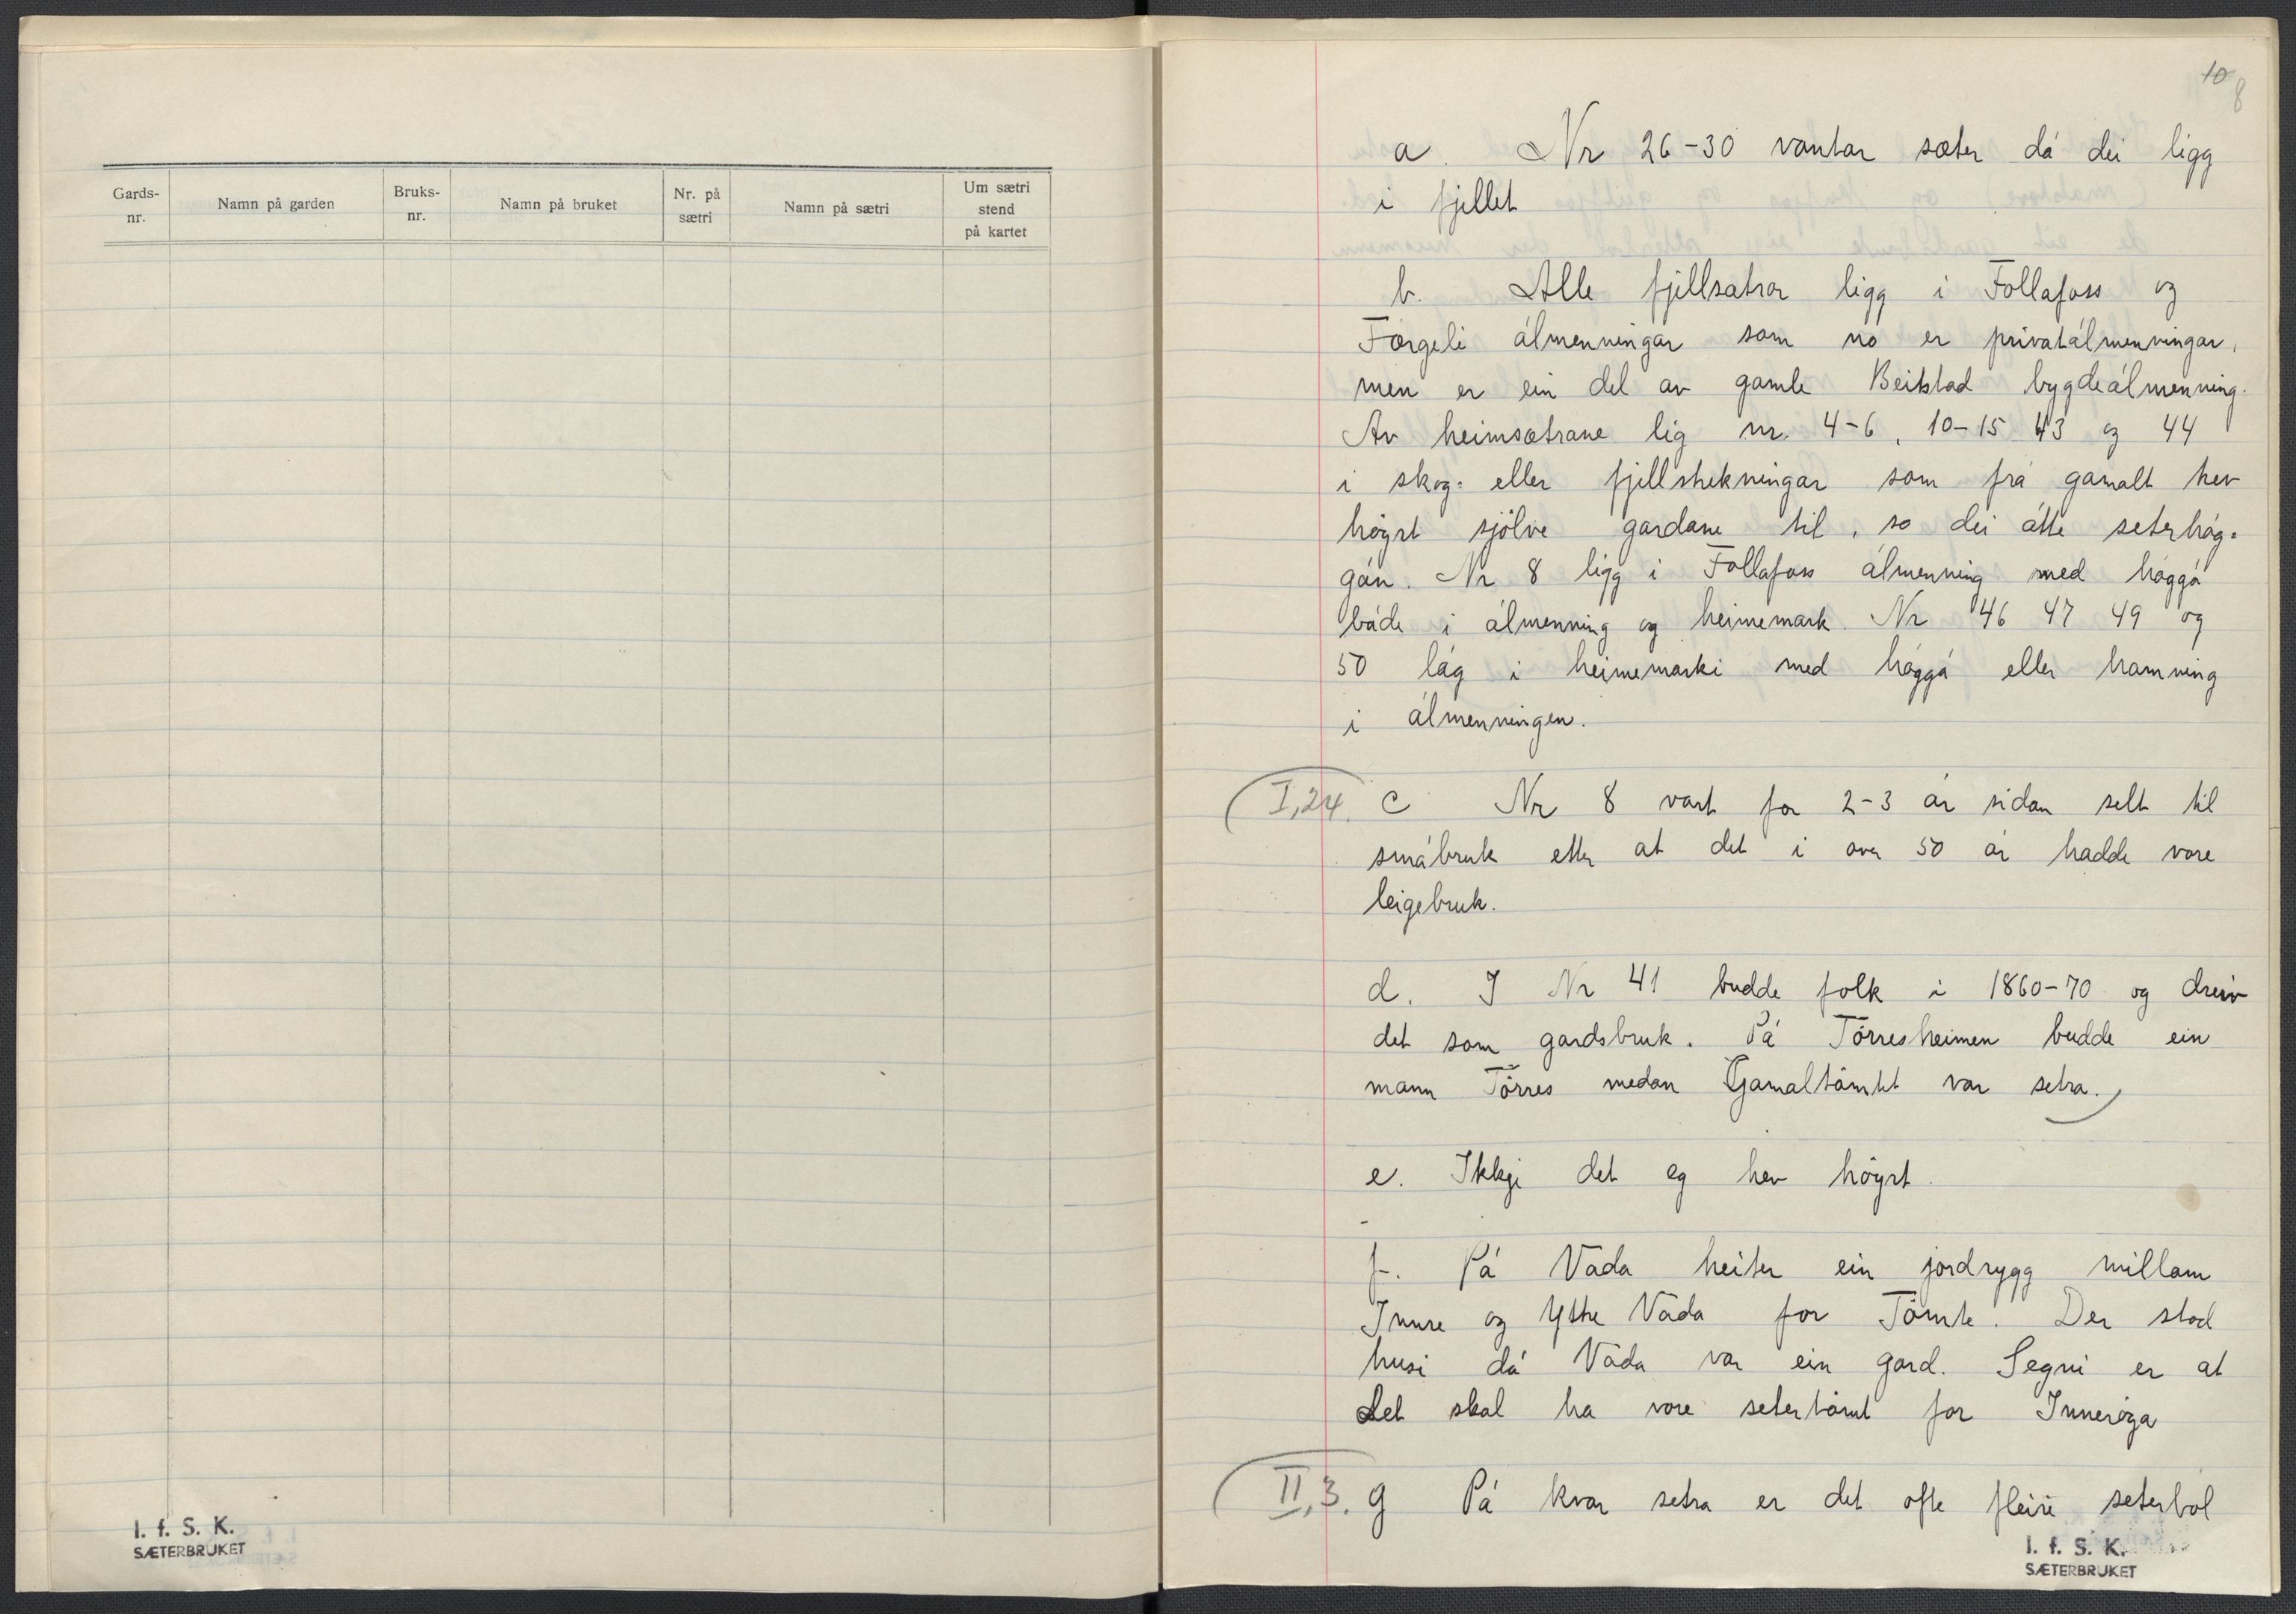 Gards-
nr.
Namn på garden
Bruks-
nr.
Namn på bruket
Nr. på
sætri
Namn på sætri
Um sætri
stend
på kartet
I. f. S. K.
SÆTERBRUKET
10
8
a. Nr 26-30 vantar sæter då dei ligg
i fjellet
b. Alle fjellsætrar ligg i Follafoss og
Førgeli ålmenningar som no er privatålmenningar,
men er ein del av gamle Beitstad bygdeålmenning.
Av heimsætrane lig nr. 4-6, 10-15 43 og 44
i skog- eller fjellstrekningar som frå gamalt hev
høyrt sjølve gardane til, so dei åtte seterhåg-
gån. Nr 8 ligg i Follafoss ålmenning med håggå
både i ålmenning og heimemark. Nr 46 47 49 og
50 låg i heimemarki med håggå eller hamning
i ålmenningen.
I,24. c Nr 8 vart for 2-3 år sidan selt til
småbruk etter at det i over 50 år hadde vore
leigebruk.
d. I Nr 41 budde folk i 1860-70 og dreiv
det som gardsbruk. På Tørresheimen budde ein
mann Tørres medan Gamaltømtet var setra.
e. Ikkje det eg hev høyrt.
f. På Våda heiter ein jordrygg millom
Innre og Yttre Våda for Tømte. Der stod
husi då Våda var ein gard. Segni er at
det skal ha vore setertømt for Innerøya
II,3. g På kvar setra er det ofte fleire seterbol
I. f. S. K.
SÆTERBRUKET